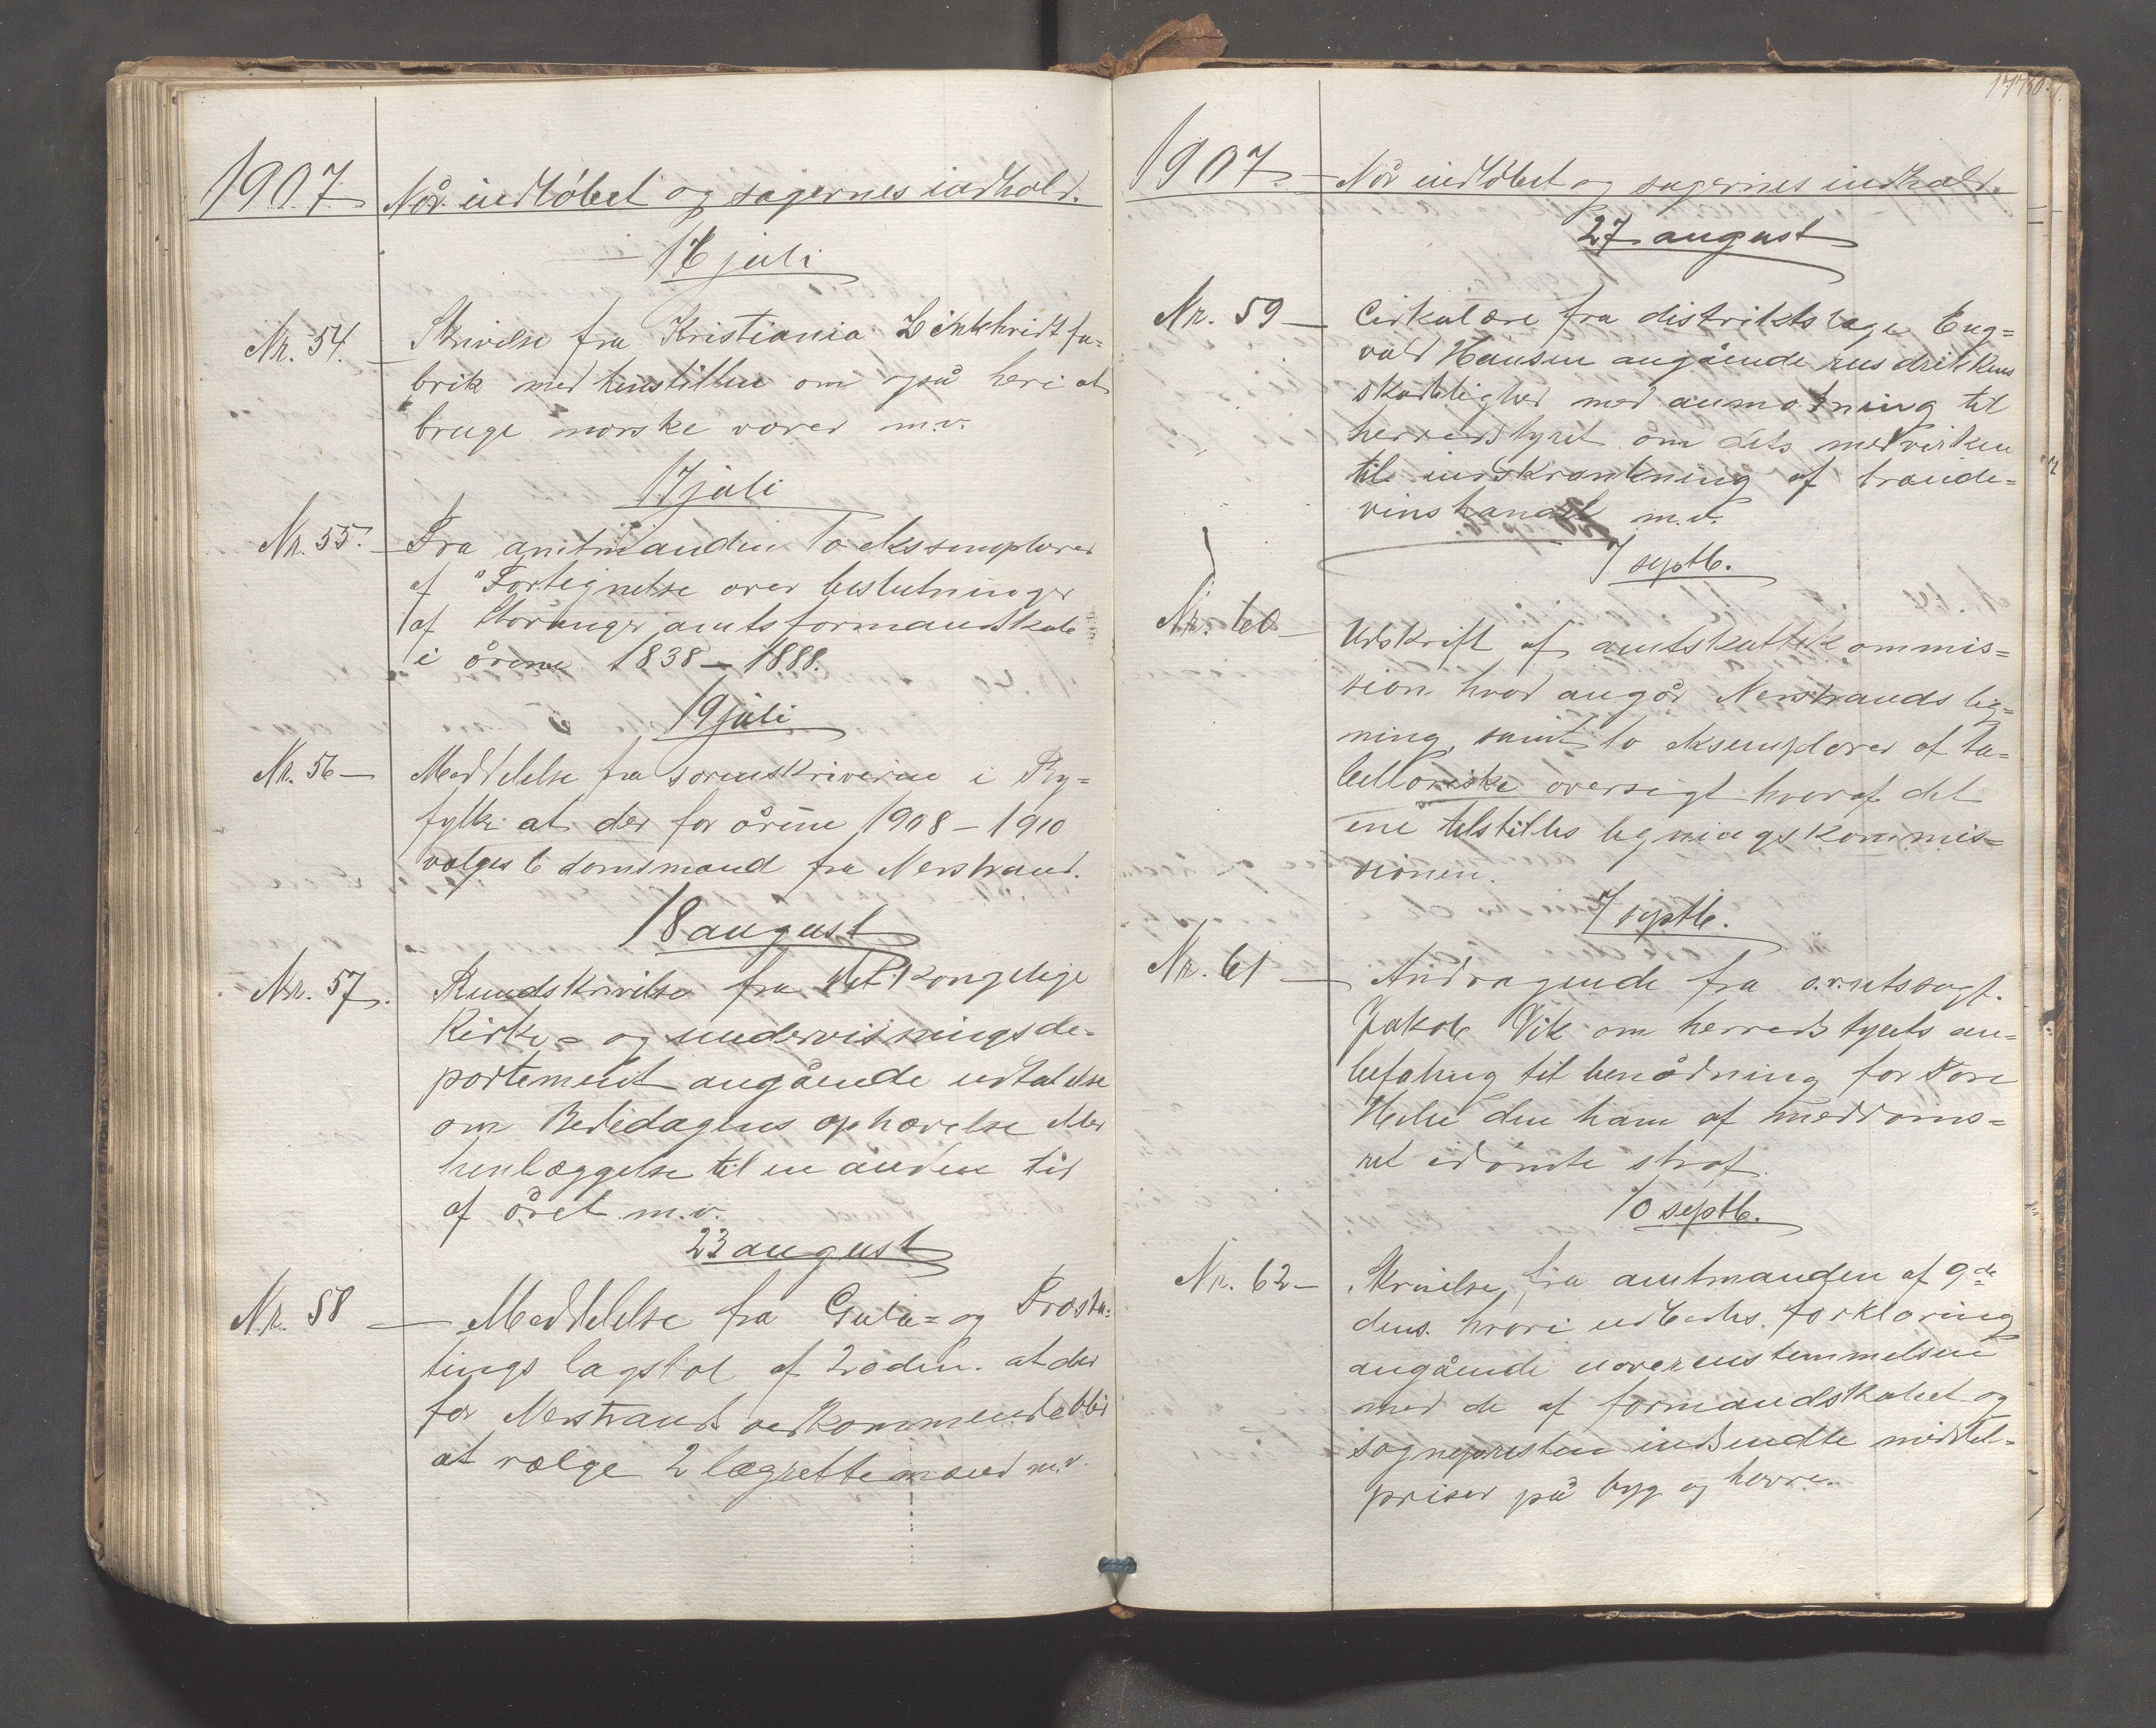 1907
Når indløbet og sagernes indhold.
16 juli
Nr. 54. Skrivelse fra Kristiania Linkhvidtfa-
brik med henstillen om også heri at
bruge norske varer m.v.
17 juli
Nr. 55. – Fra amtmanden to eksemplarer
af "Fortegnelse over beslutninger
af Stavanger amtsformandskab
i årene 1838 – 1888.
19 juli
Nr. 56 – Meddelelse fra sorenskriveren i Ry-
fylke at der for årene 1908 – 1910
vælges 6 domsmænd fra Nerstrand.
18 august
Nr. 57. Rundskrivelse fra det kongelige
Kirke- og undervisningsde-
partement angående udtalelse
om Bededagens ophævelse eller
henlæggelse til en anden tid
af året m.v.
23 august
Nr. 58 – Meddelelse fra Gula- og Frosta-
tings lagstol af 20 den. at der
for Nerstrands vedkommende blir
at vælge 2 lægrettemænd m.v.
1907
Når indløbet og sagernes indhold.
27 august
Nr. 59 – Cirkulære fra distriktslæge Eng-
vald Hansen angående rusdrikkens
skadelighed med anmodning til
herredstyret om dets medvirken
til indskrænkning af brænde-
vinshandel m.v.
7 septb.
Nr. 60 – Udskrift af amtskattekommis-
sion hvad angår Nerstrands lig-
ning, samt to eksemplarer af ta-
bellariske oversigt hvoraf det
ene tilstilles ligningskommis-
sionen.
7 septb.
Nr. 61 – Andragende fra o.r.
Jakob Vik om herredstyrets an-
befaling til benådning for Tore
den ham af meddoms-
ret idømte straf.
10 septb.
Nr. 62 – Skrivelse fra amtmanden af 9de
dens. hvori udbedes forklaring
angående uoverenstemmelsen
med de af formandskabet og
sognepresten indsendte middel-
priser på byg og havre.